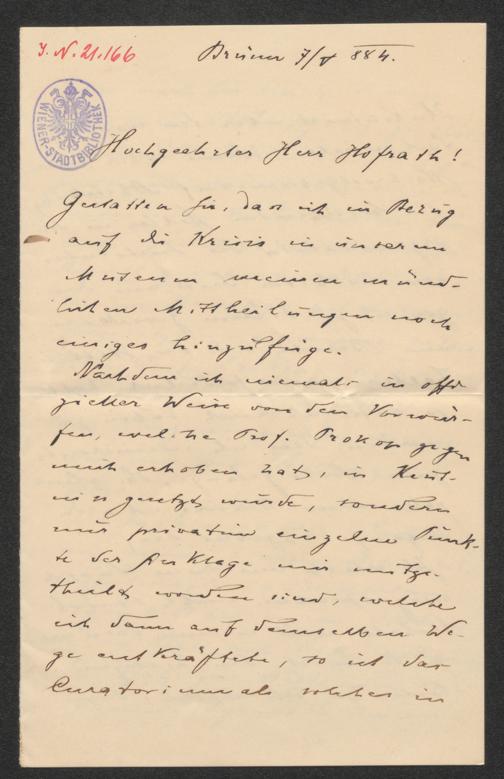 J. N. 21.166
Brünn 7/V 884.
WIENER-STADTBIBLIOTHEK
Hochgeehrter Herr Hofrath!
Gestatten Sie, das ich in Bezug
auf die Krisis in unserem
Museum meinen münd-
lichen Mittheilungen noch
einiges hinzufüge.
Nachdem ich niemals in offi-
zieller Weise von den Vorwür-
fen, welche Prof. Prokop gegen
mich erhoben hat, in Kent-
nis gesetzt wurde, sondern
nur privatim einzelne Punk-
te der Anklage mir mitge-
theilt worden sind, welche
ich dann auf demselben We-
ge entkräftete, so ist das
Curatorium als solches in